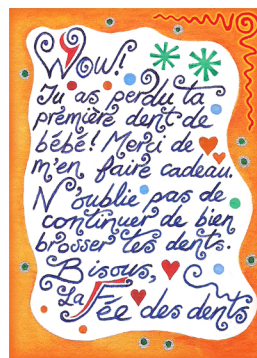 Wow!
Tu as perdu ta
première dent de
bébé! Merci de
m'en faire cadeau.
N'oublie pas de
continuer de bien
brosser tes dents.
Bisous,
La Fée des dents